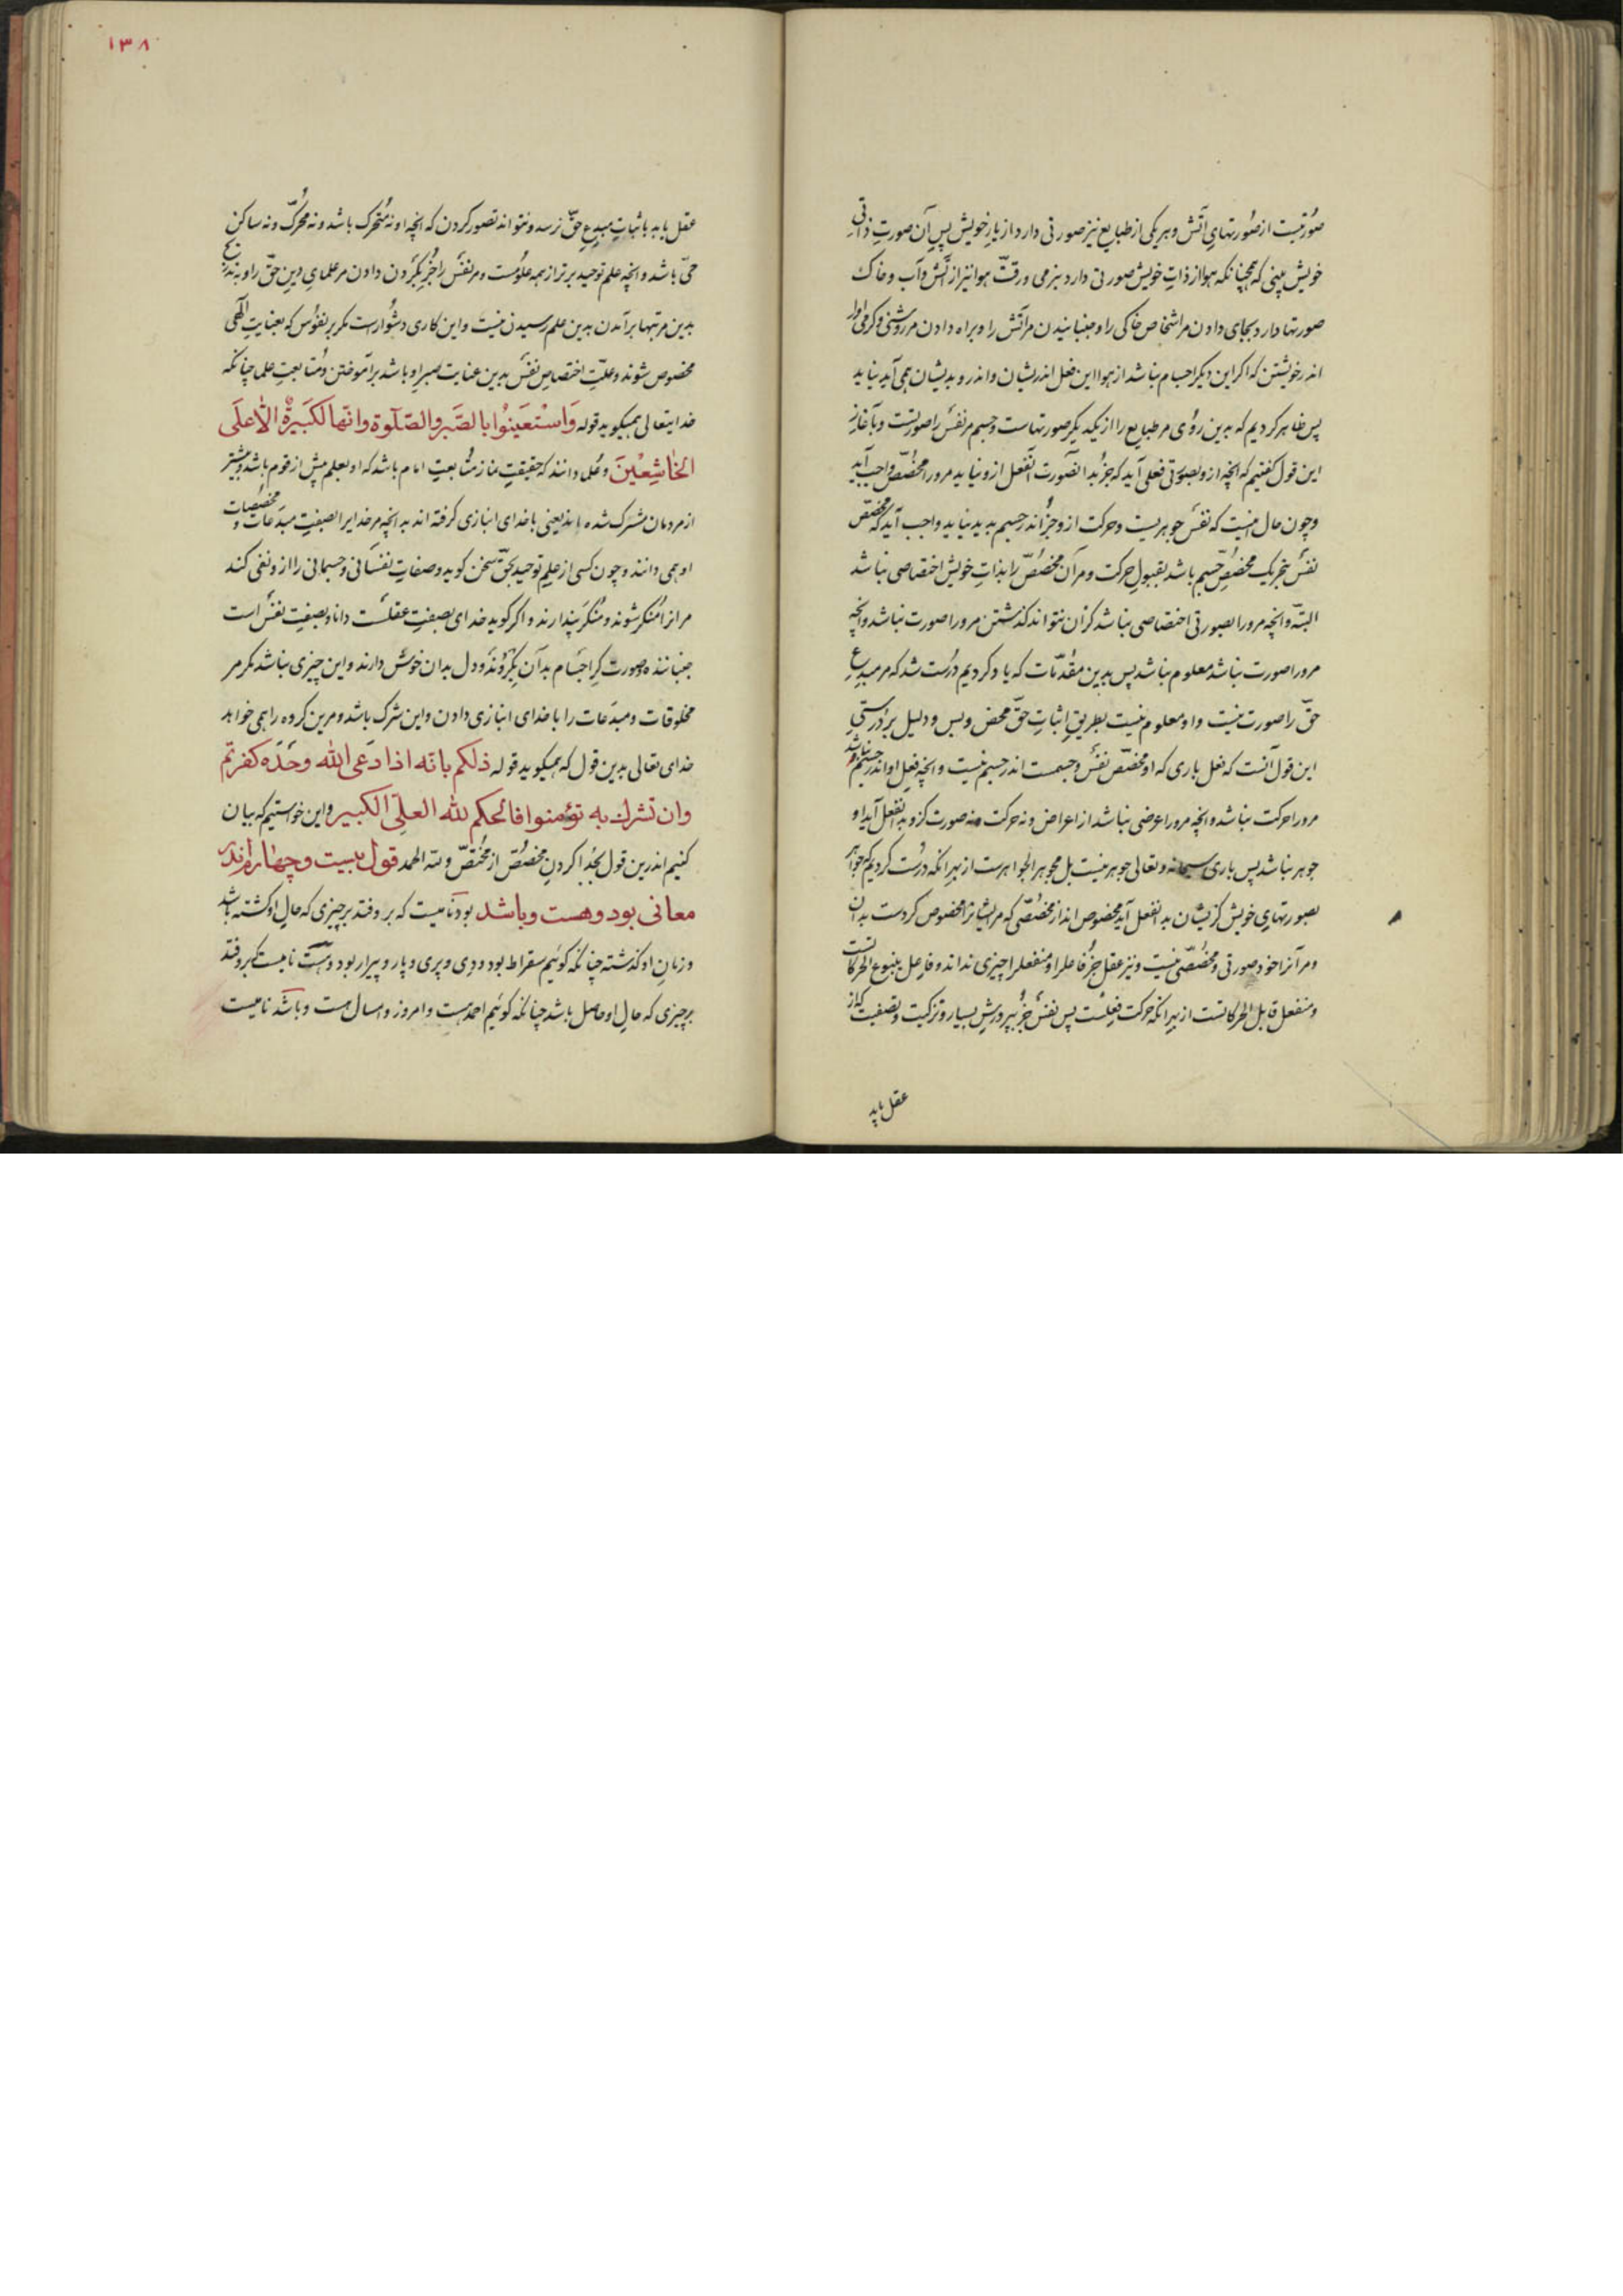 صورتیست از صورتهای آتش و هر یکی از طبایع نیز صورتی دارد از یار خویش پس آن صورت ذاتی
خویش بینی که همچنانکه هوا از ذات خویش صورتی دارد بنرمی و رقت هوا نیز از آتش و آب و خاک
صورتها دارد بجای دادن مر اشخاص خاکی را و جنبانیدن مر آتش را و براه دادن مر روشنی و گرمی را
اندر خویشتن که اگر این دیگر اجسام نباشد از هوا این فعل اندریشان و اندرو بدیشان همی آید نیاید
پس ظاهر کردیم که بدین روی مر طبایع را از یکدیگر صورتهاست و جسم مر نفس را صورتست و بآغاز
این قول گفتیم که آنچه ازو بصورتی فعلی آید که جز بدان صورت آن فعل ازو نیاید مرورا مخصص واجب آید
و چون حال اینست که نفس جوهریست و حرکت ازو جز اندر جسم پدید نیاید واجب آید که مختص
نفس بتحریک مخصص جسم باشد بقبول حرکت و مر آن مخصص را بذات خویش اختصاصی نباشد
البته و آنچه مرورا بصورتی اختصاصی نباشد کزان نتواند گذشتن مرورا صورت نباشد و آنچه
مرورا صورت نباشد معلوم نباشد پس بدین مقدمات که یاد کردیم درست شد که مر مبدع
حق را صورت نیست و او معلوم نیست بطریق اثبات حق محض و بس و دلیل بر درستی
این قول آنست که فعل باری که او مخصص نفس و جسمست اندر جسم نیست و آنچه فعل او اندر جسم نباشد
مرورا حرکت نباشد و آنچه مرورا عرضی نباشد از اعراض و نه حرکت و نه صورت کزو بدان فعل آید او
جوهر نباشد پس باری سبحانه و تعالی جوهر نیست بل مجوهر الجواهرست از بهر آنکه درست کردیم که جواهر
بصورتهای خویش کزیشان بدان فعل آید مخصوص اند از مخصصی که مر ایشانرا مخصوص کردست بدان
و مر آنرا خود صورتی و مخصصی نیست و نیز عقل جز فاعل را و منفعل را چیزی نداند و فاعل ینبوع الحرکاتست
و منفعل قابل الحرکاتست از بهر آنکه حرکت فعلست پس نفس جز بپرورش بسیار و تزکیت و تصفیت که از
عقل یابد
۱۳۸
عقل یابد باثبات مبدع حق نرسد و نتواند تصور کردن که آنچه او نه متحرک باشد و نه محرک و نه ساکن
حی باشد و آنچه علم توحید برتر از همه علومست و مر نفس را جز بگردن دادن مر علمای دین حق را و بتدریج
بدین مرتبها برآمدن بدین علم رسیدن نیست و این کاری دشوارست مگر بر نفوس که بعنایت الهی
مخصوص شوند و علت اختصاص نفس بدین عنایت صبر او باشد بر آموختن و متابعت علما چنانکه
خدایتعالی همیگوید قوله وَاسْتَعینُوا بالصَّبر والصَّلوة وانّها لَکَبیرَةٌ الّا عَلَی
الخاشِعینَ و علما دانند که حقیقت نماز متابعت امام باشد که او بعلم پیش از قوم باشد و بیشتر
از مردمان مشرک شده اند یعنی با خدای انبازی گرفته اند به آنچه مر خدایرا بصفت مبدعات و مخصوصات
او همی دانند و چون کسی از علم توحید بحق سخن گوید و صفات نفسانی و جسمانی را ازو نفی کند
مر انرا منکر شوند و منکر پندارند و اگر گوید خدای بصفت عقلست دانا و بصفت نفس است
جنباننده و صورت گر اجسام بدان بگروند و دل بدان خوش دارند و این چیزی نباشد مگر مر
مخلوقات و مبدعات را با خدای انبازی دادن و این شرک باشد و مرین گروه را همی خواهد
خدای تعالی بدین قول که همیگوید قوله ذلکم بانّه اذا دُعی الله وحدَه کفرتم
وان یشرک به تؤمنوا فالحکم لله العلیّ الکبیر و این خواستیم که بیان
کنیم اندرین قول بجدا کردن مخصص از مختص و لله الحمد قول بیست و چهارم اندر
معانی بود و هست و باشد بود نامیست که بر وفتد بر چیزی که حال او گشته باشد
و زمان او گذشته چنانکه گوئیم سقراط بود و دی و پری و پار و پیرار بود و هست نامیست که بروفتد
بر چیزی که حال او حاصل باشد چنانکه گوئیم احمد هست و امروز و امسال هست و باشد نامیست